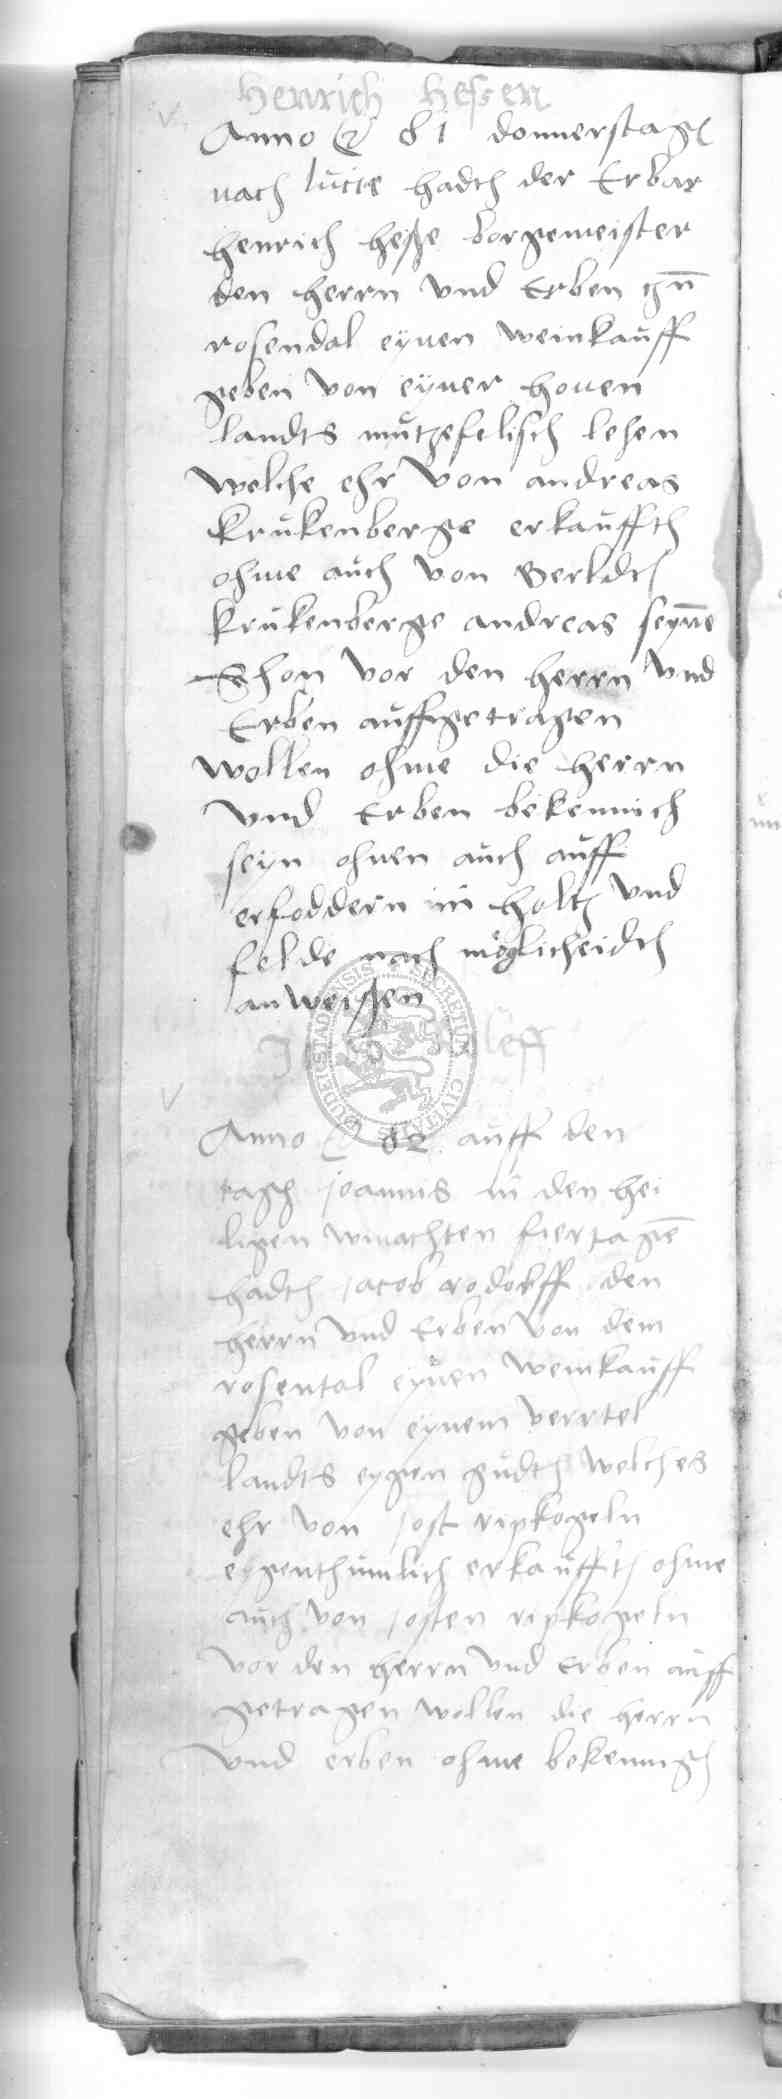 Henrich Hessen
Anno 81 donnerstagh
nach lucie hadth der Erbar
henrich heße borgemeister
den herrn vnd Erben
rosendal eynen weinkauff
geben von eyner houen
landts mutzefelisch lehen
welche ehr von andreas
krukenberge erkauffth
ohme auch von Berldth
krukenberge andreas seyne
Shon vor den herrn vnd
Erben auffgetragen
wollen ohme die herrn
vnd Erben bekennich
seyn ohnen auch auff
erfoddern im holtz vnd
felde nach möglicheidth
anweißen
Anno 82 auff den
tagh joannis in den hei
ligen winachten fiertagē
hadth jacob rodolff den
herrn vnd Erben von dem
rosental eynen weinkauff
geben von eynem verrtel
landts eygen gudth welches
ehr von jost ripkogeln
eygenthumlich erkauffth ohme
auch von josten ripkogeln
vor den herrn vnd Erben auff
getragen wollen die herrn
vnd erben ohme bekennigh
SECRETUM CIVITATIS DUDERSTADENSIS